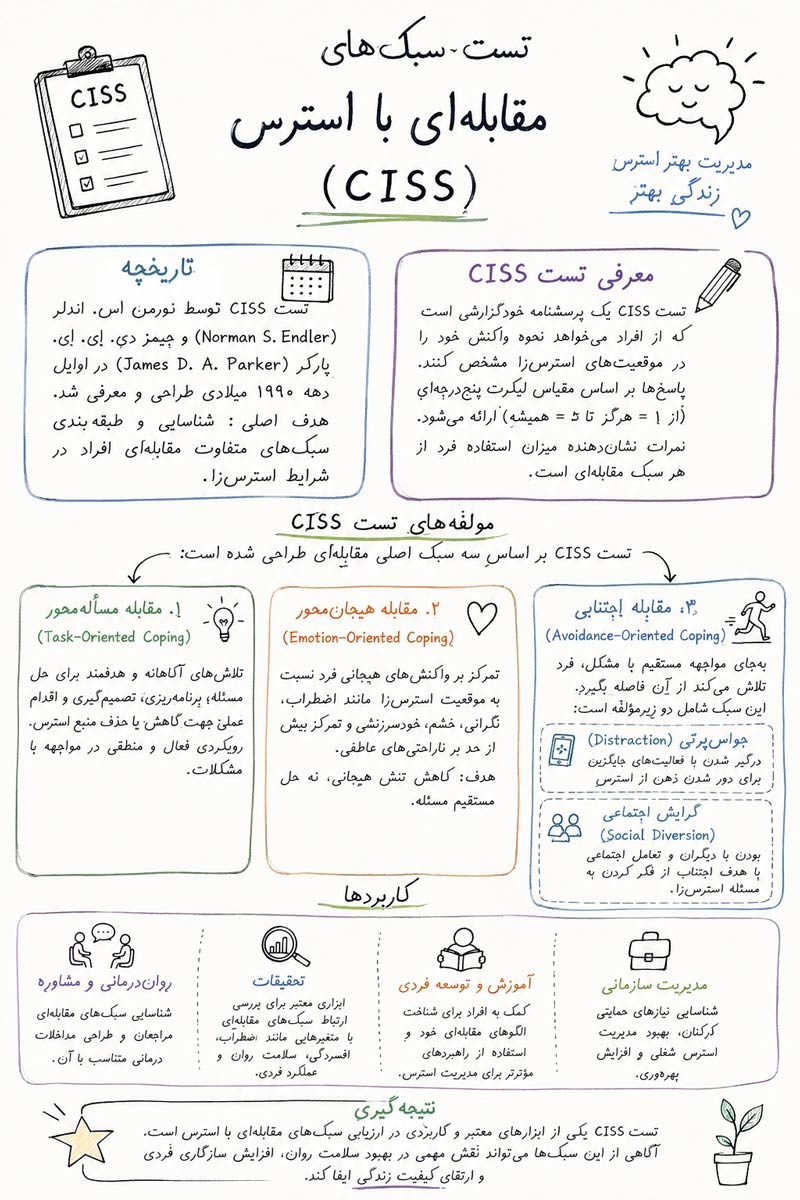 CISS
تست سبک‌های
مقابله‌ای با استرس
(CISS)
مدیریت بهتر استرس
زندگی بهتر
معرفی تست CISS
تست CISS یک پرسشنامه خودگزارشی است
که از افراد می‌خواهد نحوه واکنش خود را
در موقعیت‌های استرس‌زا مشخص کنند.
پاسخ‌ها بر اساس مقیاس لیکرت پنج‌درجه‌ای
(از ۱ = هرگز تا ۵ = همیشه) ارائه می‌شود.
نمرات نشان‌دهنده میزان استفاده فرد از
هر سبک مقابله‌ای است.
تاریخچه
تست CISS توسط نورمن اس. اندلر
(Norman S. Endler) و جیمز دی. ای. ای.
پارکر (James D. A. Parker) در اوایل
دهه ۱۹۹۰ میلادی طراحی و معرفی شد.
هدف اصلی : شناسایی و طبقه‌بندی
سبک‌های متفاوت مقابله‌ای افراد در
شرایط استرس‌زا.
مولفه‌های تست CISS
تست CISS بر اساس سه سبک اصلی مقابله‌ای طراحی شده است:
۱. مقابله مسأله‌محور
(Task-Oriented Coping)
تلاش‌های آگاهانه و هدفمند برای حل
مسئله؛ برنامه‌ریزی، تصمیم‌گیری و اقدام
عملی جهت گاهش یا حذف منبع استرس.
رویکردی فعال و منطقی در مواجهه با
مشکلات.
۲. مقابله هیجان‌محور
(Emotion-Oriented Coping)
تمرکز بر واکنش‌های هیجانی فرد نسبت
به موقعیت استرس‌زا مانند اضطراب،
نگرانی، خشم، خودسرزنشی و تمرکز بیش
از حد بر ناراحتی‌های عاطفی.
هدف: کاهش تنش هیجانی، نه حل
مستقیم مسئله.
۳. مقابله اجتنابی
(Avoidance-Oriented Coping)
به‌جای مواجهه مستقیم با مشکل، فرد
تلاش می‌کند از آن فاصله بگیرد.
این سبک شامل دو زیرمؤلفه است:
حواس‌پرتی (Distraction)
درگیر شدن با فعالیت‌های جایگزین
برای دور شدن ذهن از استرس
گرایش اجتماعی
(Social Diversion)
بودن با دیگران و تعامل اجتماعی
با هدف اجتناب از فکر کردن به
مسئله استرس‌زا.
کاربردها
مدیریت سازمانی
شناسایی نیازهای حمایتی
کرکنان، بهبود مدیریت
استرس شغلی و افزایش
بهره‌وری.
آموزش و توسعه فردی
کمک به افراد برای شناخت
الگوهای مقابله‌ای خود و
استفاده از راهبردهای
مؤثرتر برای مدیریت استرس.
تحقیقات
ابزاری معتبر برای بررسی
ارتباط سبک‌های مقابله‌ای
با متغیرهایی مانند اضطراب،
افسردگی، سلامت روان و
عملکرد فردی.
روان‌درمانی و مشاوره
شناسایی سبک‌های مقابله‌ای
مراجعان و طراحی مداخلات
درمانی متناسب با آن.
نتیجه‌گیری
تست CISS یکی از ابزارهای معتبر و کاربردی در ارزیابی سبک‌های مقابله‌ای با استرس است.
آگاهی از این سبک‌ها می‌تواند نقش مهمی در بهبود سلامت روان، افزایش سازگاری فردی
و ارتقای کیفیت زندگی ایفا کند.